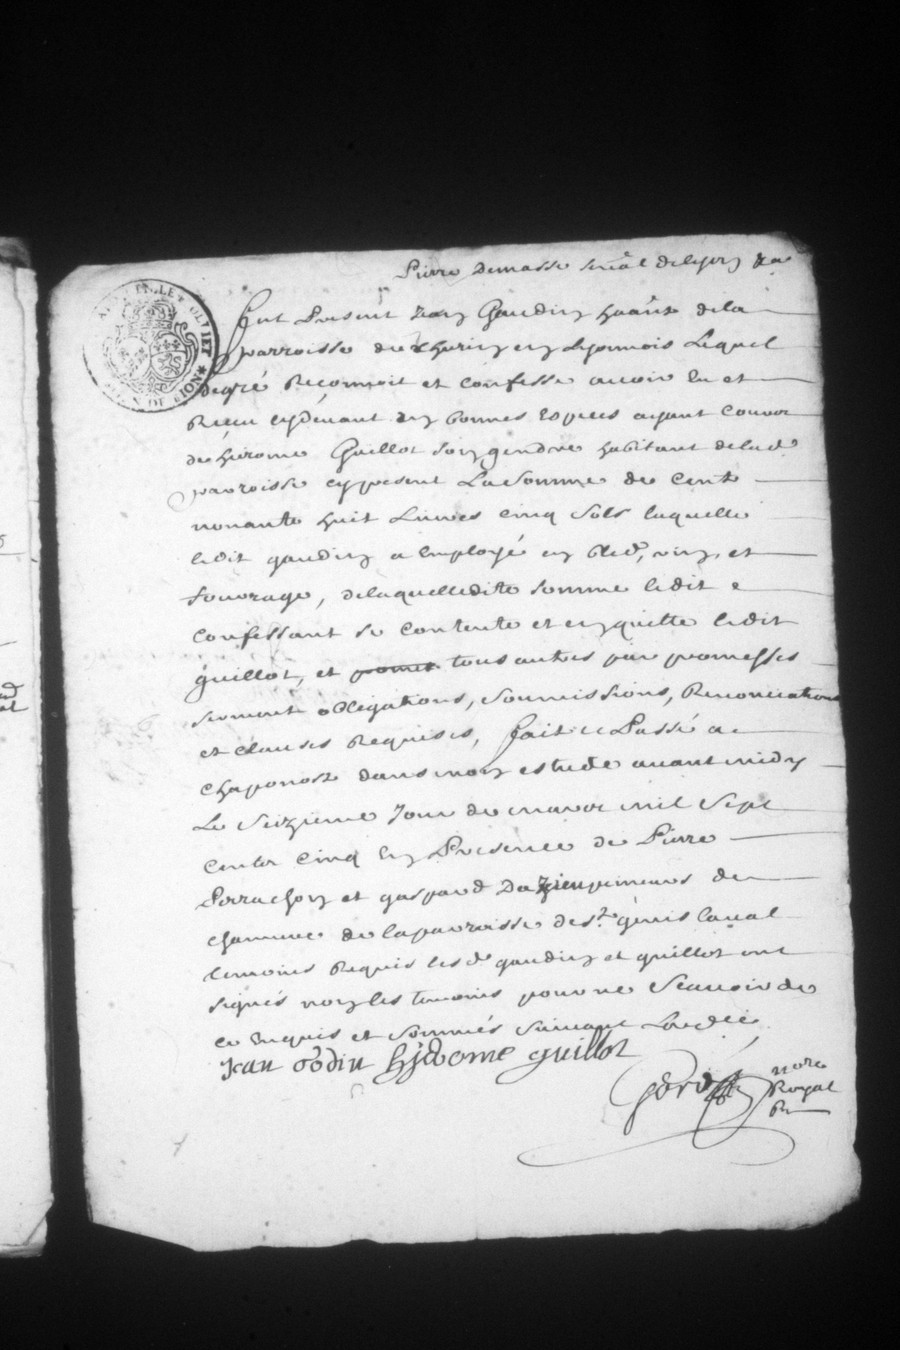 Pierre Demasse senal de lyon
fut Present Jean Gaudin hāant de la
parroisse de thurin en Lyonnois Lequel
degré Reconnoit et confesse avoir Eu et
Receu cydevant en bonnes Especes ayant Cours
de hierome Guillot son gendre habitant de lad
parroisse cypresent La Somme de Cent
nonante huit Livres cinq Sols laquelle
ledit gaudin a Employé en bled, vin, et
fourage, de laquelledite somme ledit
confessant se contente et en quitte ledit
guillot, et promet tous autres par promesses
serment obligations, soumissions, Renonciations
et clauses Requises, fait et Passé a
Chaponost dans mon estude avant midy
Le Seizieme Jour de mars mil Sept
Cents Cinq En Presence de Pierre
Perrachon et gaspard
de la parroisse de st. genis laval
temoins Requis lesd gaudin et guillot ont
signés non les temoins pour ne Scavoir de
ce Enquis et sommés suivant Lordce
Jean Godin hyerome guillot
notre
Royal